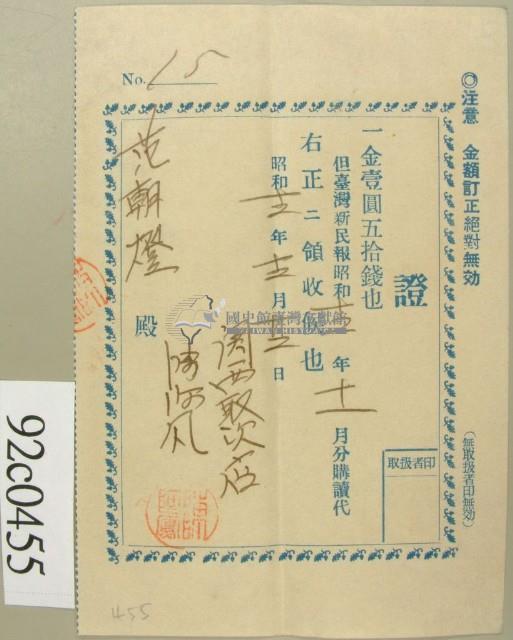 ◎注意 金額訂正絕對無効
(無取扱者印無効)
No. 15
證
一金壹圓五拾錢也
但臺灣新民報昭和十一年十一月分購讀代
右正ニ領收候也
昭和十一年十二月 日
関西取次店
范朝燈 殿
取扱者印
國史館臺灣文獻館
TAIWAN HISTORICA
92c0455
455